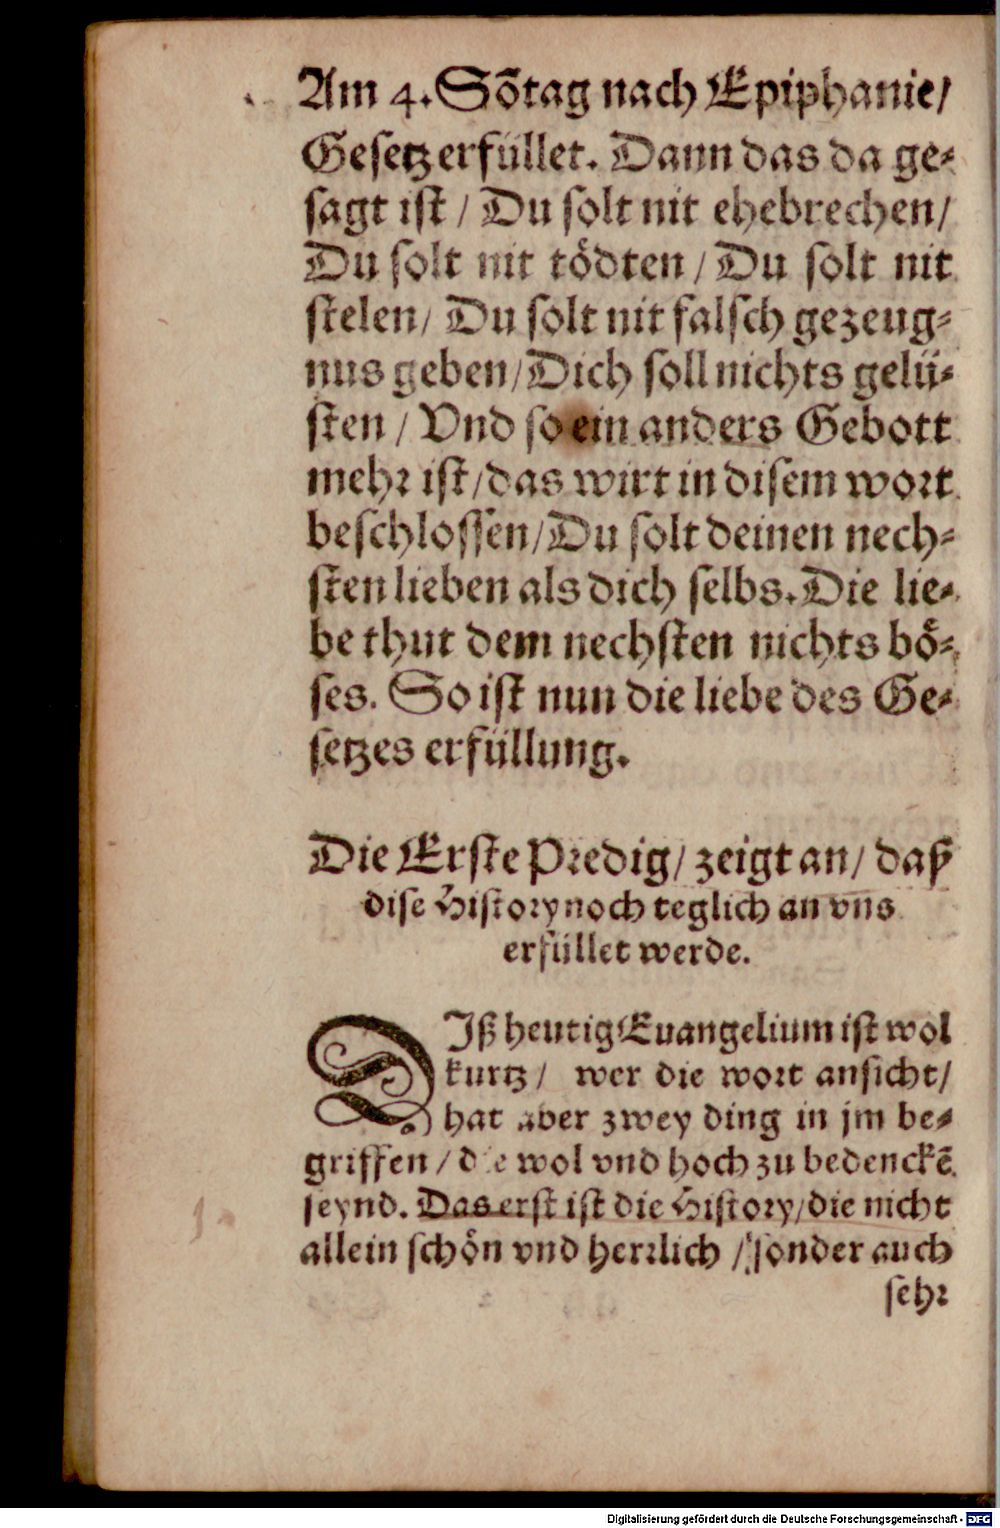 Am 4. Sõtag nach Epiphanie/
Gesetz erfüllet. Dann das da ge-
sagt ist / Du solt nit ehebrechen/
Du solt nit tödten / Du solt nit
stelen / Du solt nit falsch gezeug-
nus geben / Dich soll nichts gelü-
sten / Vnd so ein anders Gebott
mehr ist / das wirt in disem wort
beschlossen / Du solt deinen nech-
sten lieben als dich selbs. Die lie-
be thut dem nechsten nichts bö-
ses. So ist nun die liebe des Ge-
setzes erfüllung.
Die Erste Predig / zeigt an / daß
dise History noch teglich an vns
erfüllet werde.
DIß heutig Euangelium ist wol
kurtz / wer die wort ansicht/
hat aber zwey ding in jm be-
griffen / die wol vnd hoch zu bedenckẽ
seynd. Das erst ist die History / die nicht
allein schön vnd herrlich / sonder auch
sehr
Digitalisierung gefördert durch die Deutsche Forschungsgemeinschaft - DFG